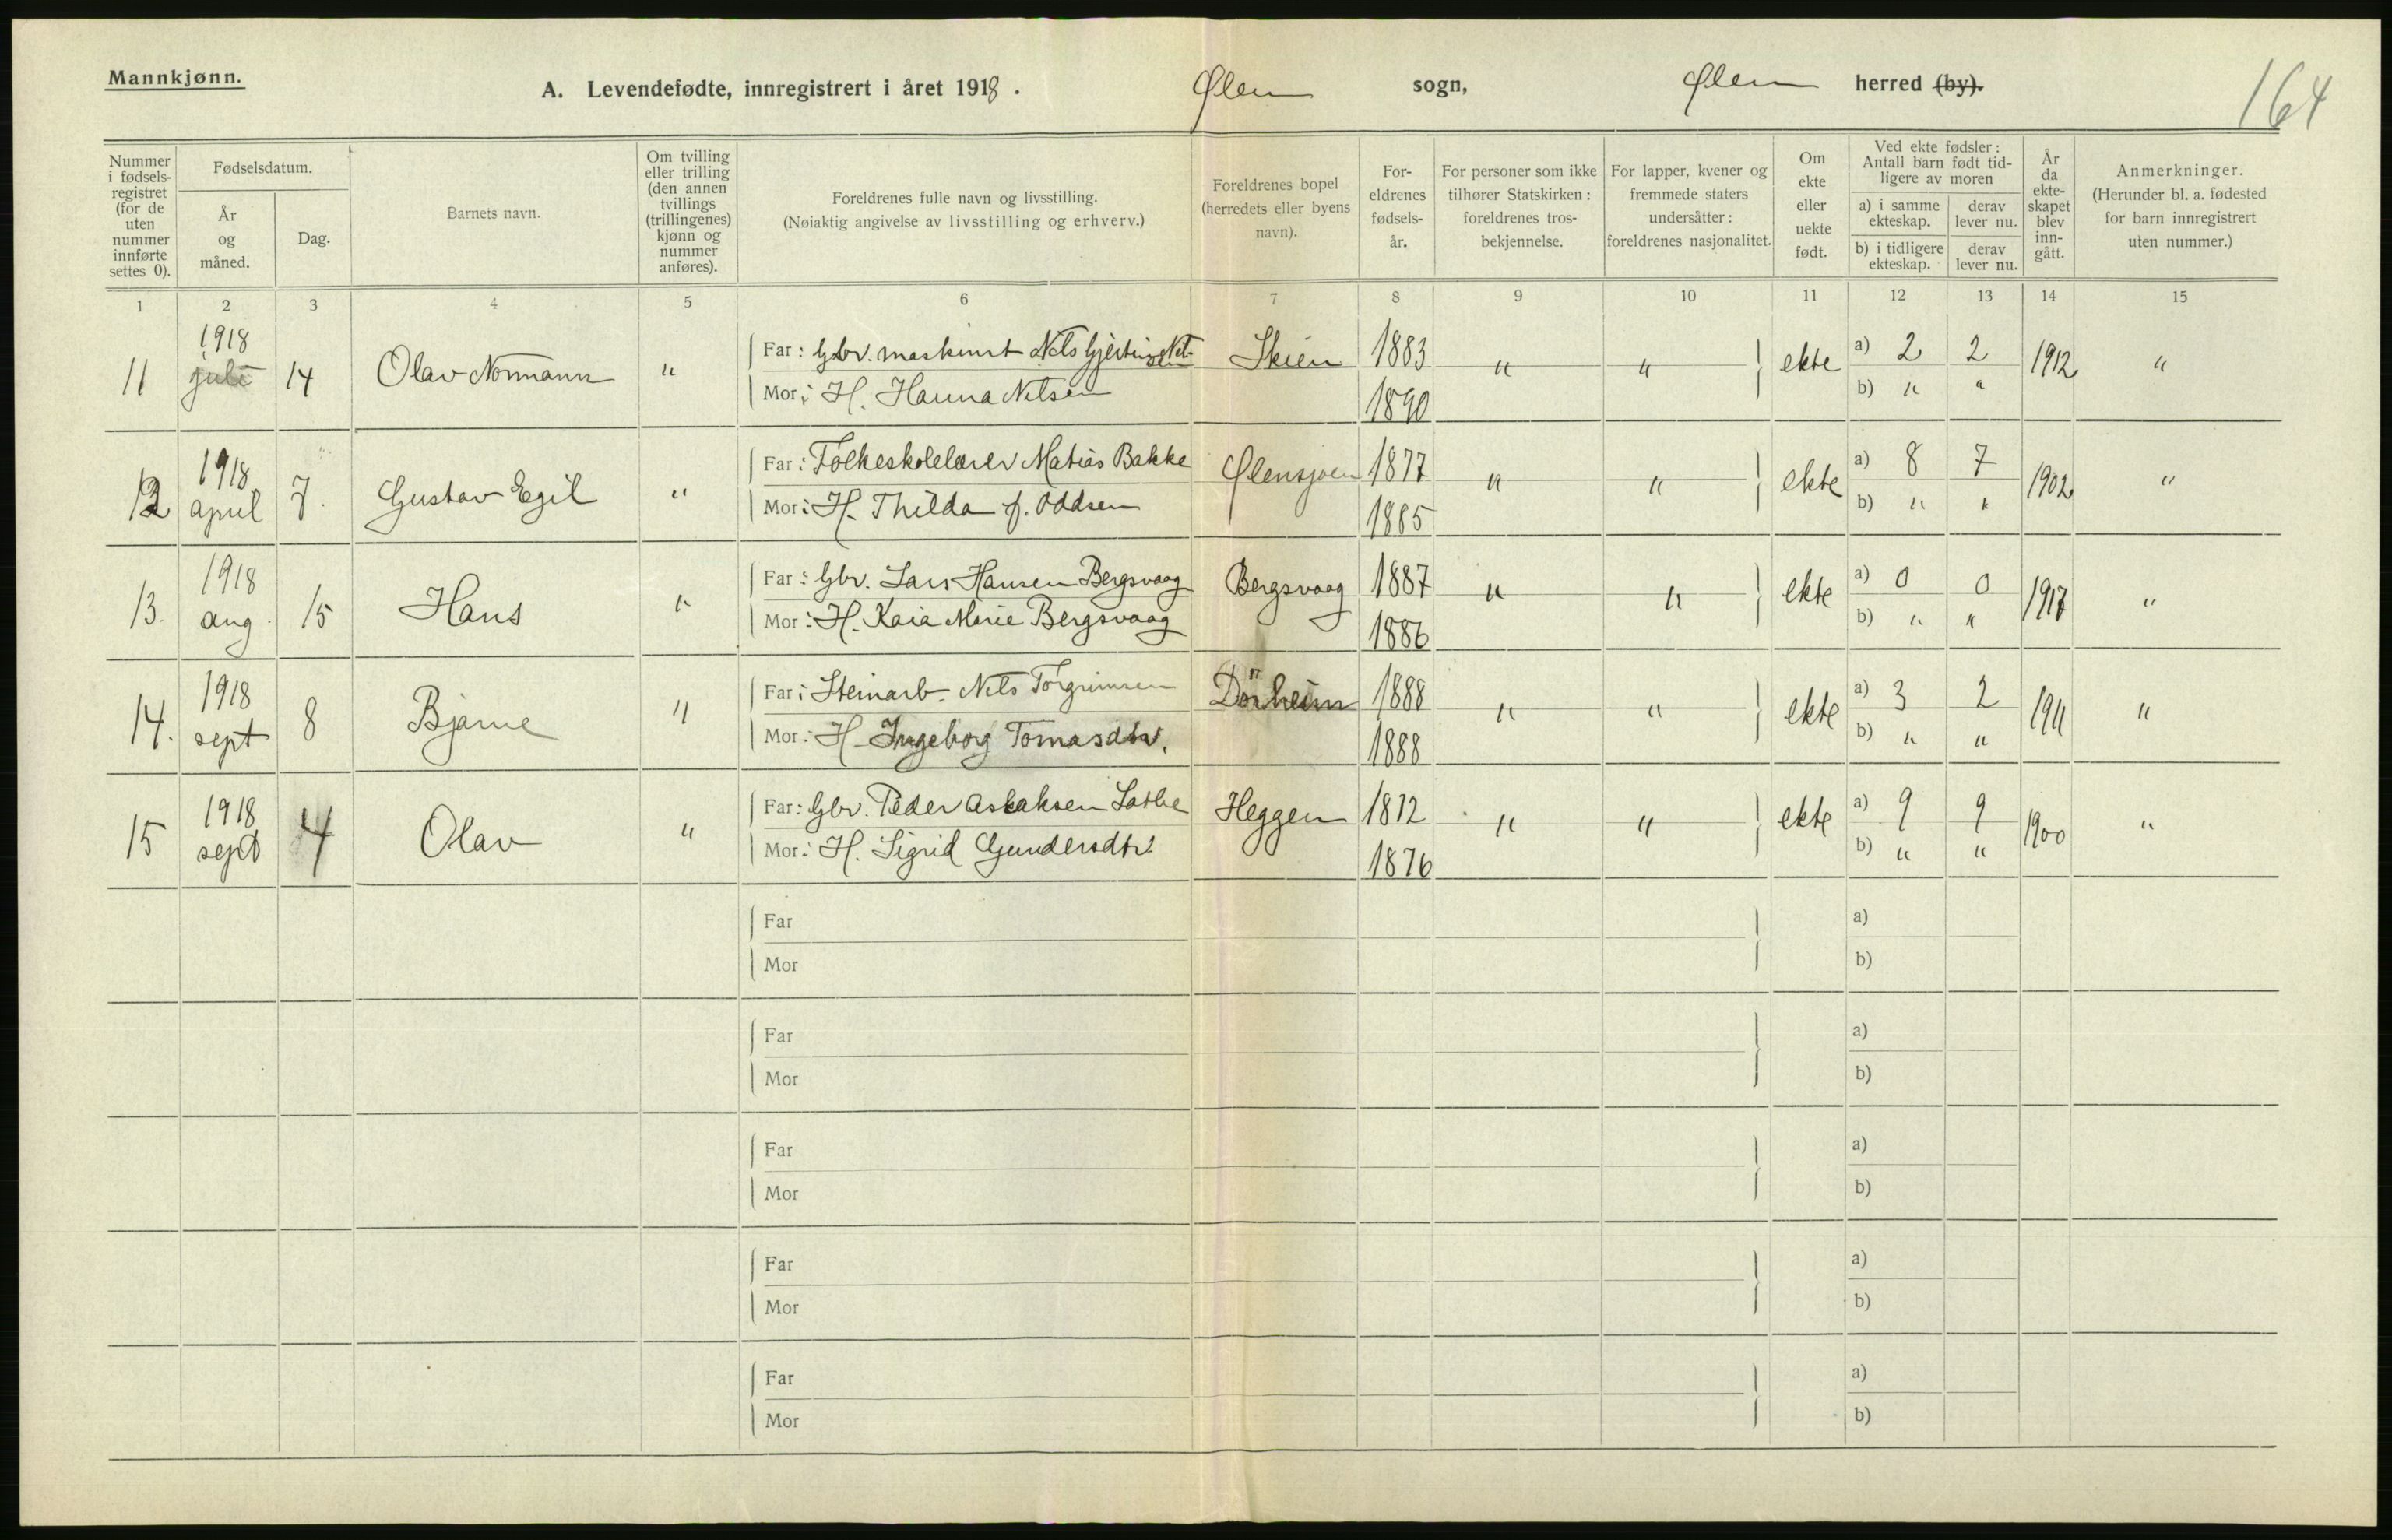 Mannkjønn.
A. Levendefødte, innregistrert i året 1918. Ølen sogn, Ølen herred (by).
164
Nummer i fødselsregistret (for de uten nummer innførte settes 0).
Fødselsdatum.
År og måned.
Dag.
Barnets navn.
Om tvilling eller trilling (den annen tvillings (trillingenes) kjønn og nummer anføres).
Foreldrenes fulle navn og livsstilling.
(Nøiaktig angivelse av livsstilling og erhverv.)
Foreldrenes bopel (herredets eller byens navn).
Foreldrenes fødselsår.
For personer som ikke tilhører Statskirken: foreldrenes trosbekjennelse.
For lapper, kvener og fremmede staters undersåtter: foreldrenes nasjonalitet.
Om ekte eller uekte født.
Ved ekte fødsler: Antall barn født tidligere av moren
a) i samme ekteskap. derav lever nu.
b) i tidligere ekteskap. derav lever nu.
År da ekteskapet blev inngått.
Anmerkninger.
(Herunder bl. a. fødested for barn innregistrert uten nummer.)
1 2 3 4 5 6 7 8 9 10 11 12 13 14 15
11 1918 juli 14 Olav Normann " Far: Gbr. maskinist Nils Gjertsen Nilsen Skien 1883 " " ekte a) 2 2 1912 "
Mor: H. Hanna Nilsen 1890 b) " "
12 1918 april 7. Gustav Egil " Far: Folkeskolelærer Matias Bakke Ølensjøen 1877 " " ekte a) 8 7 1902 "
Mor: H. Thilda f. Oddsen 1885 b) " "
13. 1918 aug. 15 Hans " Far: Gbr. Lars Hansen Bergsvaag Bergsvaag 1887 " " ekte a) 0 0 1917 "
Mor: H. Kaia Marie Bergsvaag 1886 b) " "
14. 1918 sept 8 Bjarne " Far: Steinarb. Nils Torgrimsen Dørheim 1888 " " ekte a) 3 2 1911 "
Mor: H. Ingeborg Tomasdtr. 1888 b) " "
15 1918 sept 4 Olav " Far: Gbr. Peder Aslaksen Heggen 1872 " " ekte a) 9 9 1900 "
Mor: H. Sigrid Gundersdtr. 1876 b) " "
Far a)
Mor b)
Far a)
Mor b)
Far a)
Mor b)
Far a)
Mor b)
Far a)
Mor b)